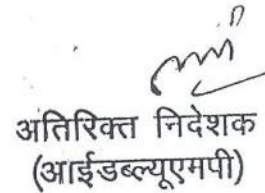 अतिरिक्त निदेशक
(आईडब्ल्यूएमपी)